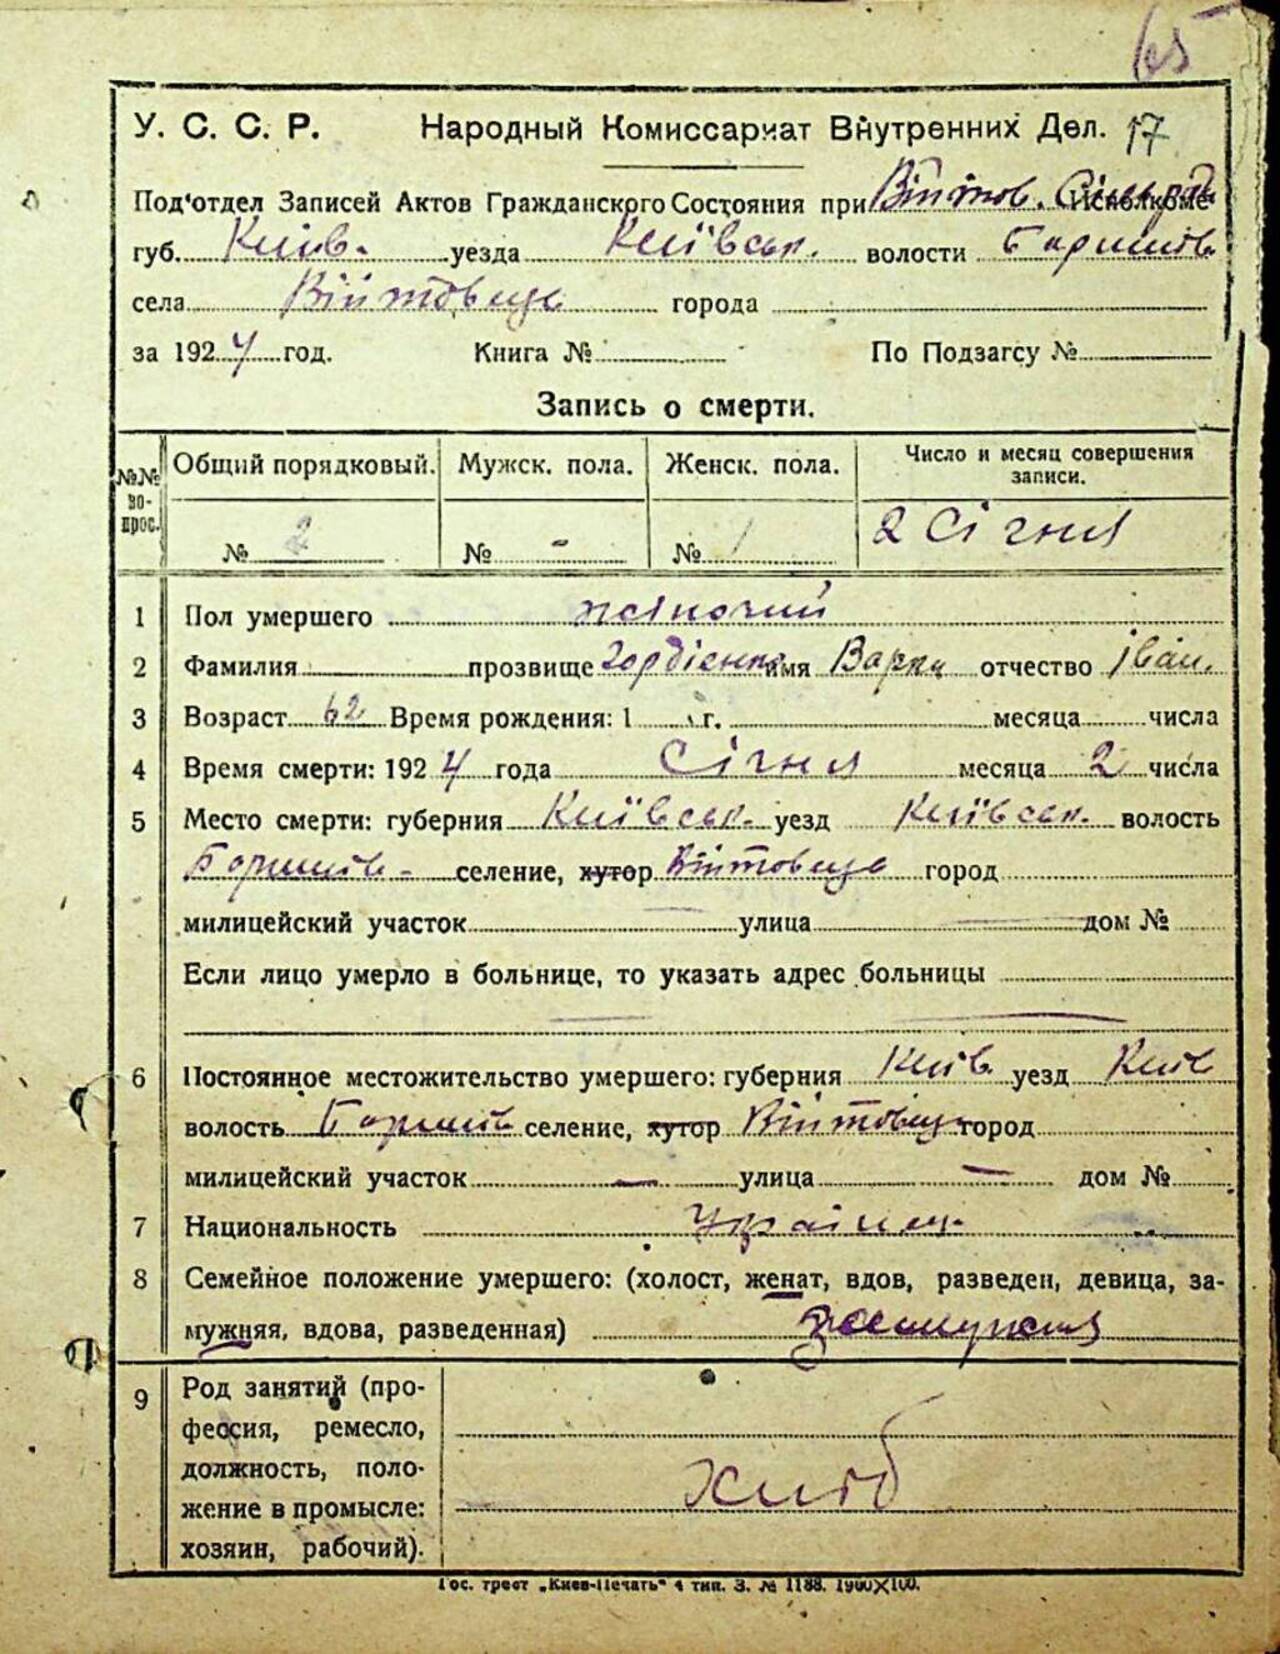 65
У. С. С. Р. Народный Комиссариат Внутренних Дел. 17
Под'отдел Записей Актов Гражданского Состояния при Війтов. Исполкоме
губ. Київ. уезда Київськ. волости
села Війтовце города
за 1924 год. Книга № По Подзагсу №
Запись о смерти.
№№ вопрос. Общий порядковый. Мужск. пола. Женск. пола. Число и месяц совершения записи.
№ 2 № - № 1 2 Січня
1 Пол умершего жіночий
2 Фамилия прозвище Гордієнко имя Варка отчество Іван.
3 Возраст 62 Время рождения: 1 г. месяца числа
4 Время смерти: 1924 года Січня месяца 2 числа
5 Место смерти: губерния Київськ. уезд Київськ. волость
селение, хутор Війтовце город
милицейский участок — улица — дом №
Если лицо умерло в больнице, то указать адрес больницы
6 Постоянное местожительство умершего: губерния Київ. уезд Київ
волость селение, хутор Війтовце город
милицейский участок — улица — дом №
7 Национальность Україн.
8 Семейное положение умершего: (холост, женат, вдов, разведен, девица, за-
мужняя, вдова, разведенная) замужня
9 Род занятий (про-
фессия, ремесло,
должность, поло-
жение в промысле: хліб
хозяин, рабочий).
Гос. трест „Киев-Печать“ 4 тип. З. № 1188. 1900×100.